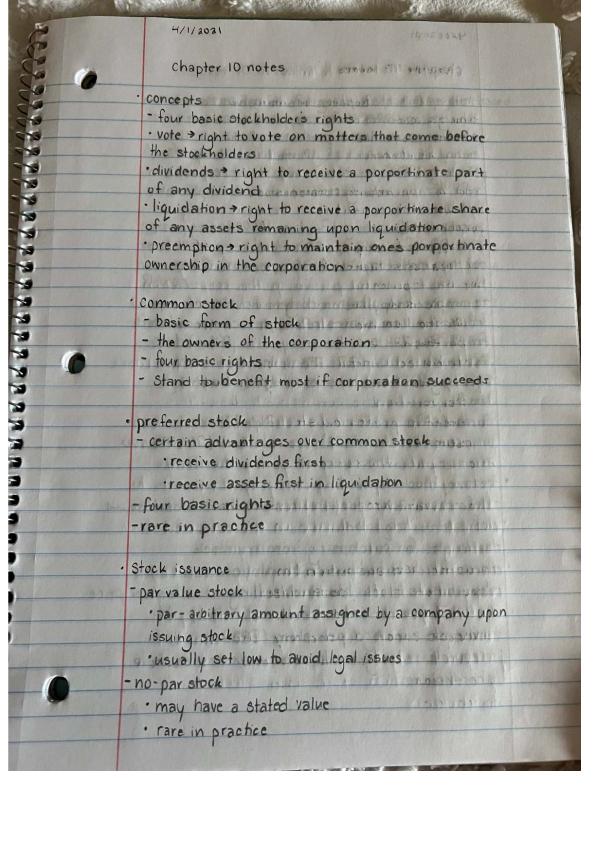 4/1/2021
Chapter 10 notes
· concepts
- four basic stockholders rights
· vote → right to vote on matters that come before
the stockholders
· dividends → right to receive a porportinate part
of any dividend
· liquidation → right to receive a porportinate share
of any assets remaining upon liquidation
· preemption → right to maintain one's porportinate
ownership in the corporation
· common stock
- basic form of stock
- the owners of the corporation
- four basic rights
- stand to benefit most if corporation succeeds
· preferred stock
- certain advantages over common stock
· receive dividends first
· receive assets first in liquidation
- four basic rights
- rare in practice
· Stock issuance
- par value stock
· par - arbitrary amount assigned by a company upon
issuing stock
· usually set low to avoid legal issues
- no-par stock
· may have a stated value
· rare in practice